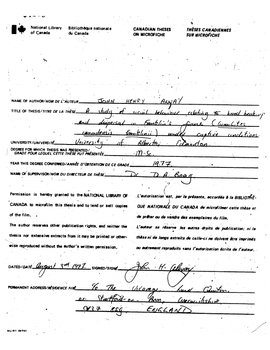 National Library of Canada
Bibliothèque nationale du Canada
CANADIAN THESES ON MICROFICHE
THÈSES CANADIENNES SUR MICROFICHE
NAME OF AUTHOR/NOM DE L'AUTEUR JOHN HENRY
TITLE OF THESIS/TITRE DE LA THÈSE A study of social behaviour relating to brood breakup
and dispersal in Franklin's grouse (Canachites
canadensis franklinii) under captive conditions
UNIVERSITY/UNIVERSITÉ University of Alberta, Edmonton
DEGREE FOR WHICH THESIS WAS PRESENTED/
GRADE POUR LEQUEL CETTE THÈSE FUT PRÉSENTÉE M.Sc
YEAR THIS DEGREE CONFERRED/ANNÉE D'OBTENTION DE CE GRADE 1977
NAME OF SUPERVISOR/NOM DU DIRECTEUR DE THÈSE Dr D.A. Boag
Permission is hereby granted to the NATIONAL LIBRARY OF
CANADA to microfilm this thesis and to lend or sell copies
of the film.
The author reserves other publication rights, and neither the
thesis nor extensive extracts from it may be printed or other-
wise reproduced without the author's written permission.
L'autorisation est, par la présente, accordée à la BIBLIOTHÈ-
QUE NATIONALE DU CANADA de microfilmer cette thèse et
de prêter ou de vendre des exemplaires du film.
L'auteur se réserve les autres droits de publication; ni la
thèse ni de longs extraits de celle-ci ne doivent être imprimés
ou autrement reproduits sans l'autorisation écrite de l'auteur.
DATED/DATÉ August 3rd 1977 SIGNED/SIGNÉ John H.
PERMANENT ADDRESS/RÉSIDENCE FIXE c/o The Vicarage
Stratford on Avon, Warwickshire
ENGLAND